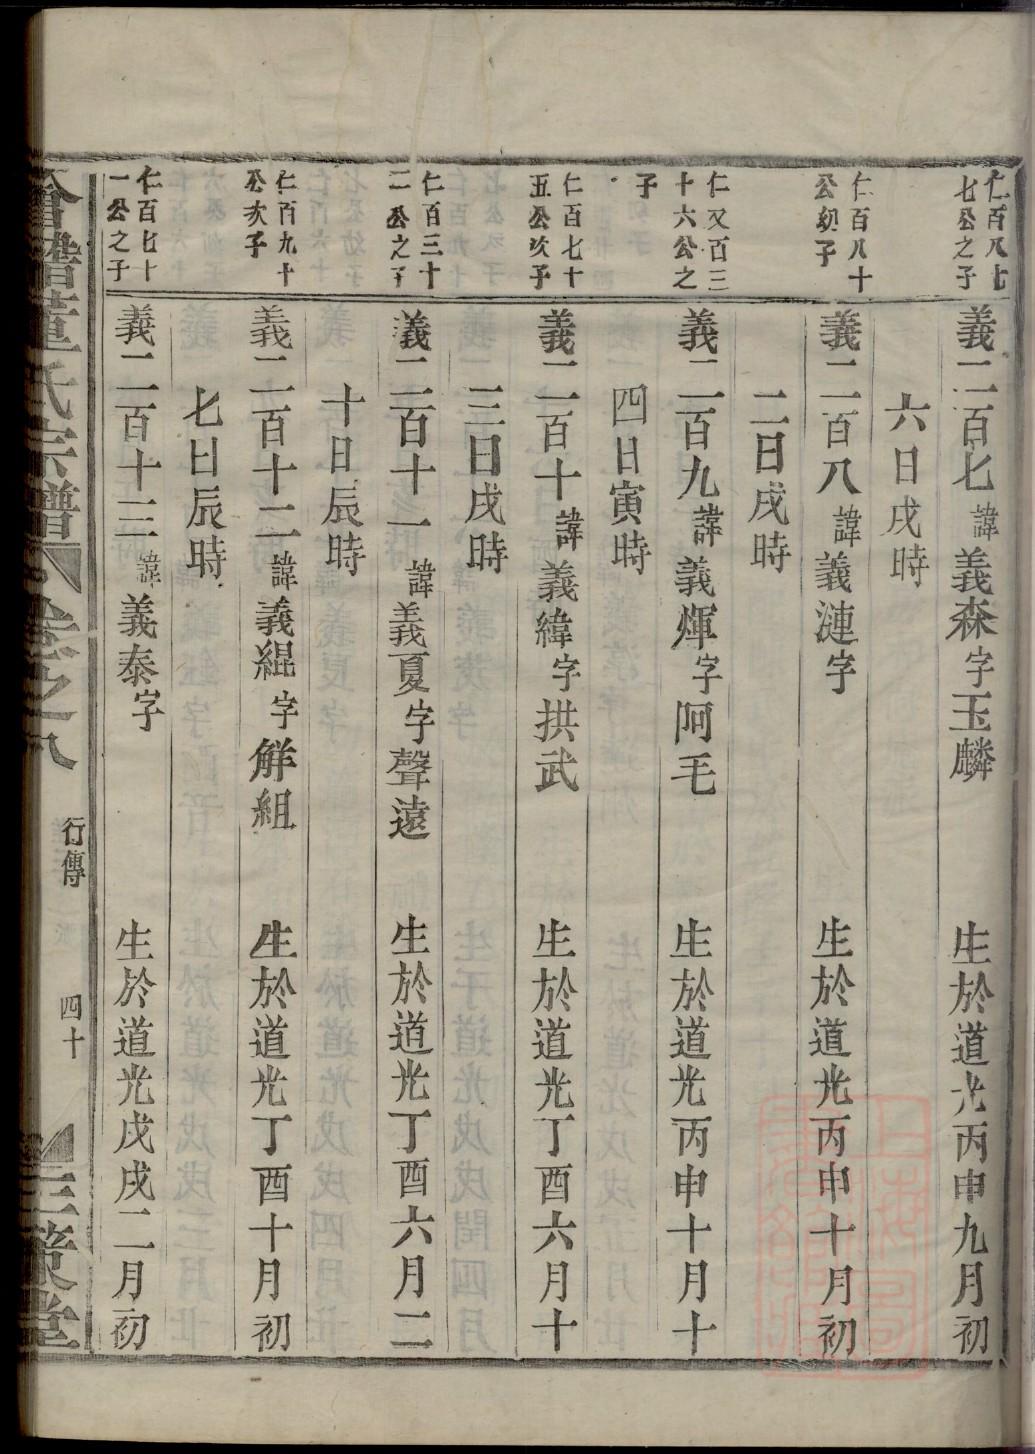 仁百八七
七公之子
義二百七諱義森字玉麟 生於道光丙申九月初
六日戌時
仁百八十
公幼子
義二百八諱義漣字 生於道光丙申十月初
二日戌時
仁又百三
十六公之
子
義二百九諱義煇字阿毛 生於道光丙申十月十
四日寅時
仁百七十
五公次子
義二百十諱義緯字拱武 生於道光丁酉六月十
三日戌時
仁百三十
二公之子
義二百十一諱義夏字聲遠 生於道光丁酉六月二
十日辰時
仁百九十
公次子
義二百十二諱義緄字解組 生於道光丁酉十月初
七日辰時
仁百七十
一公之子
義二百十三諱義泰字 生於道光戊戌二月初
會稽董氏宗譜 卷之八 行傳 四十 三策堂